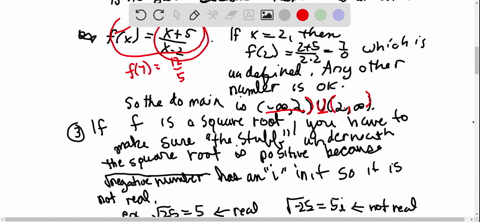 is the
Ex) f(x) = x+5/x-2  If x=2, then
f(2) = 2+5/2-2 = 7/0 which is
f(7) = 12/5
undefined. Any other
number is ok.
So the domain is (-∞,2)∪(2,∞).
③ If f is a square root, you have to
make sure "the stuff" underneath
the square root is positive because
√negative number has an "i" in it so it is
not real.
√25 = 5 ← real  √-25 = 5i ← not real